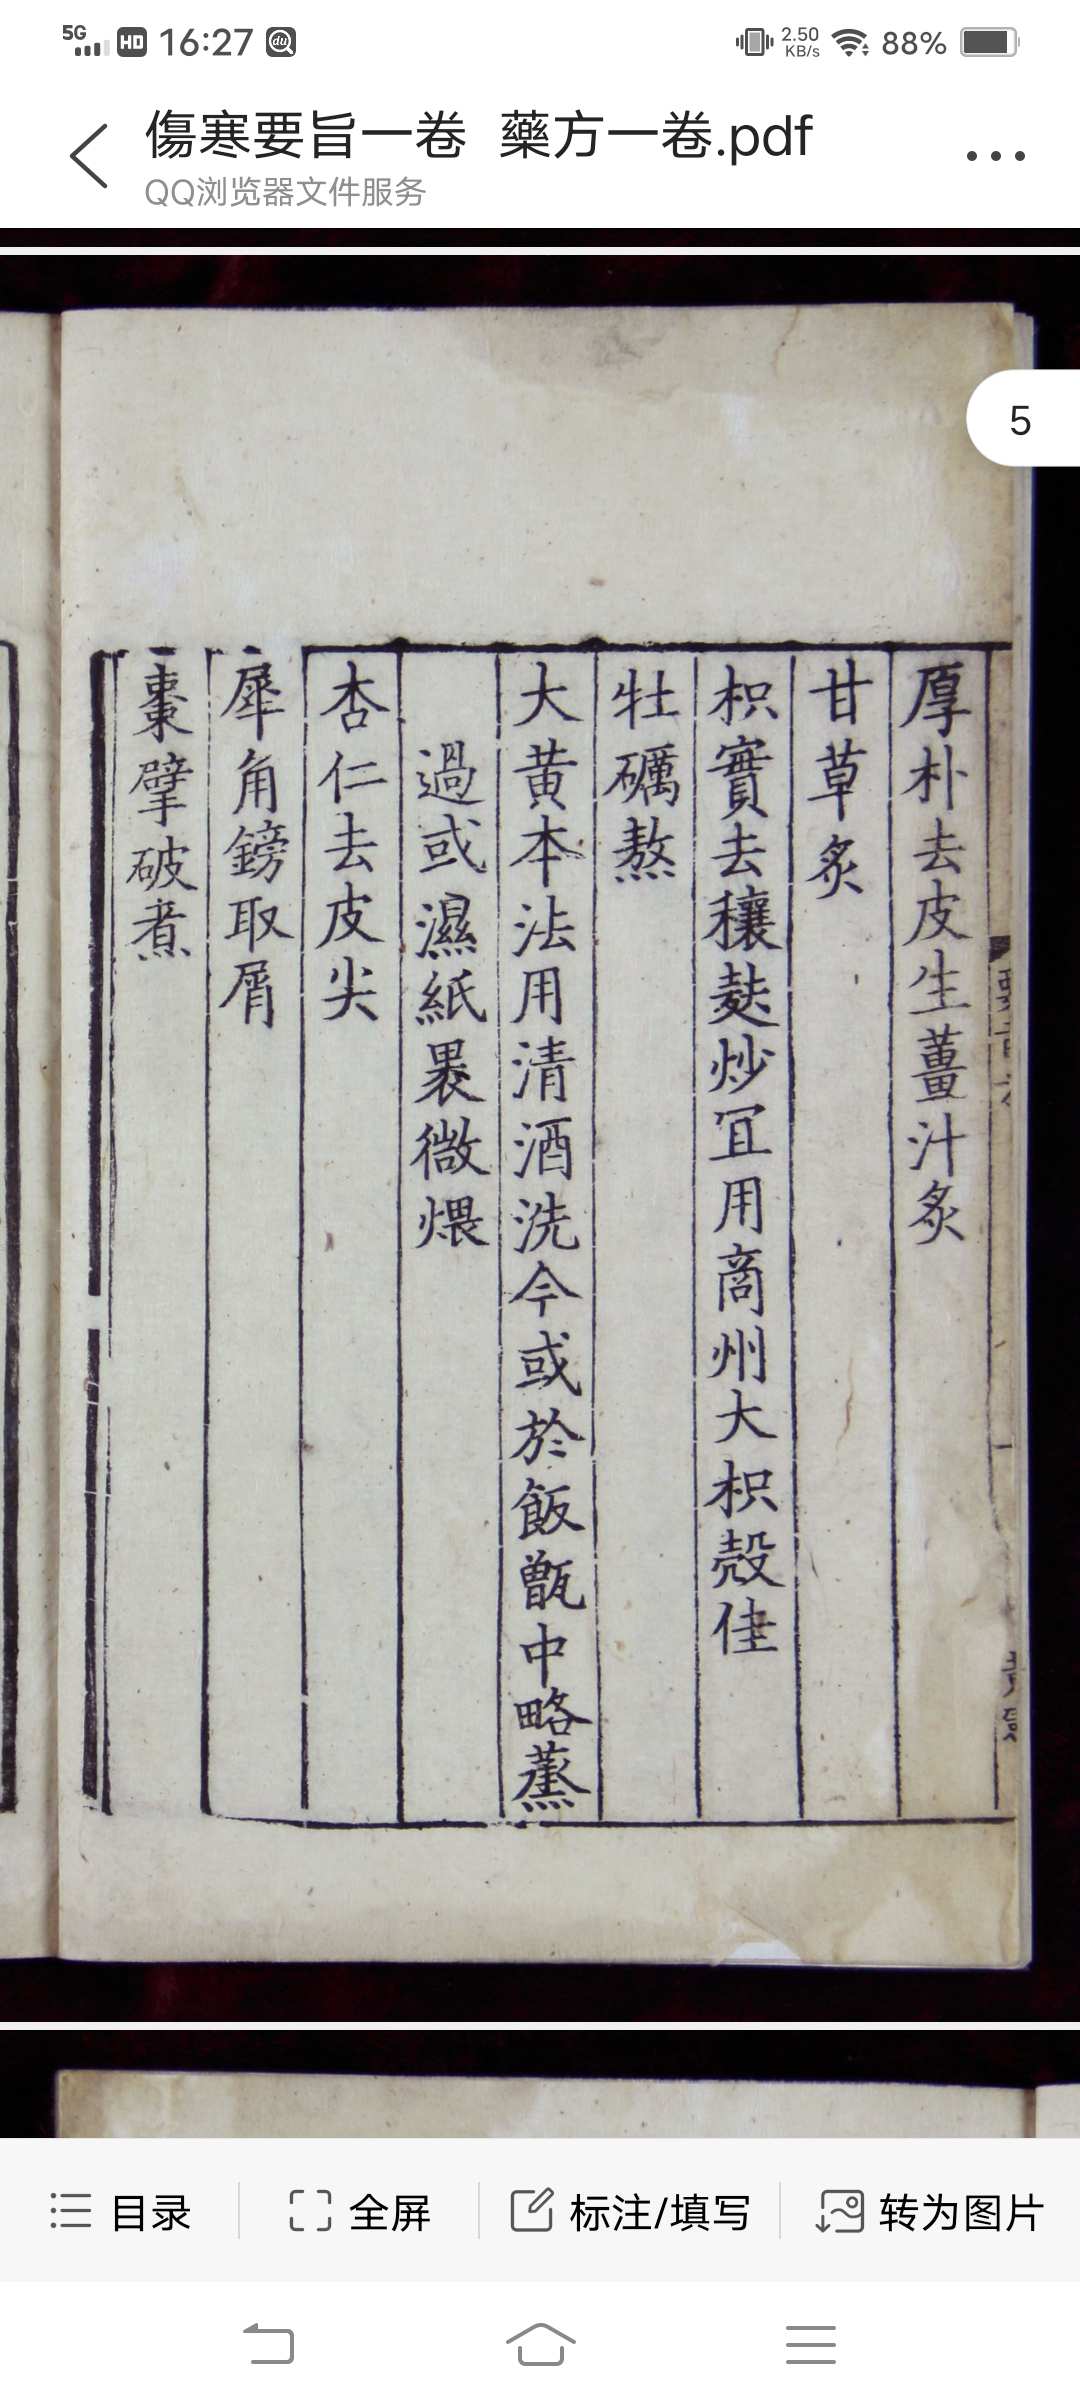 5G HD 16:27 du 2.50 KB/s 88%
傷寒要旨一卷 藥方一卷.pdf
QQ浏览器文件服务
5
厚朴去皮生薑汁炙
甘草炙
枳實去穰麸炒冝用商州大枳殻佳
牡礪熬
大黄本法用清酒洗今或於飯甑中略蒸
過或濕紙裹微煨
杏仁去皮尖
犀角鎊取屑
棗擘破煮
目录
全屏
标注/填写
转为图片